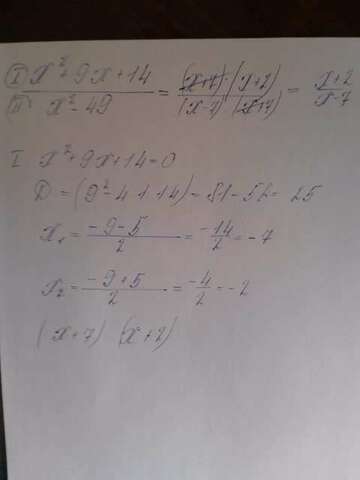 I x²+9x+14 / II x²-49 = (x+7)·(x+2) / (x-7)(x+7) = x+2 / x-7
I x²+9x+14=0
D=(9²-4·1·14)=81-56=25
x₁= -9-5 / 2 = -14 / 2 = -7
x₂= -9+5 / 2 = -4 / 2 = -2
(x+7) (x+2)